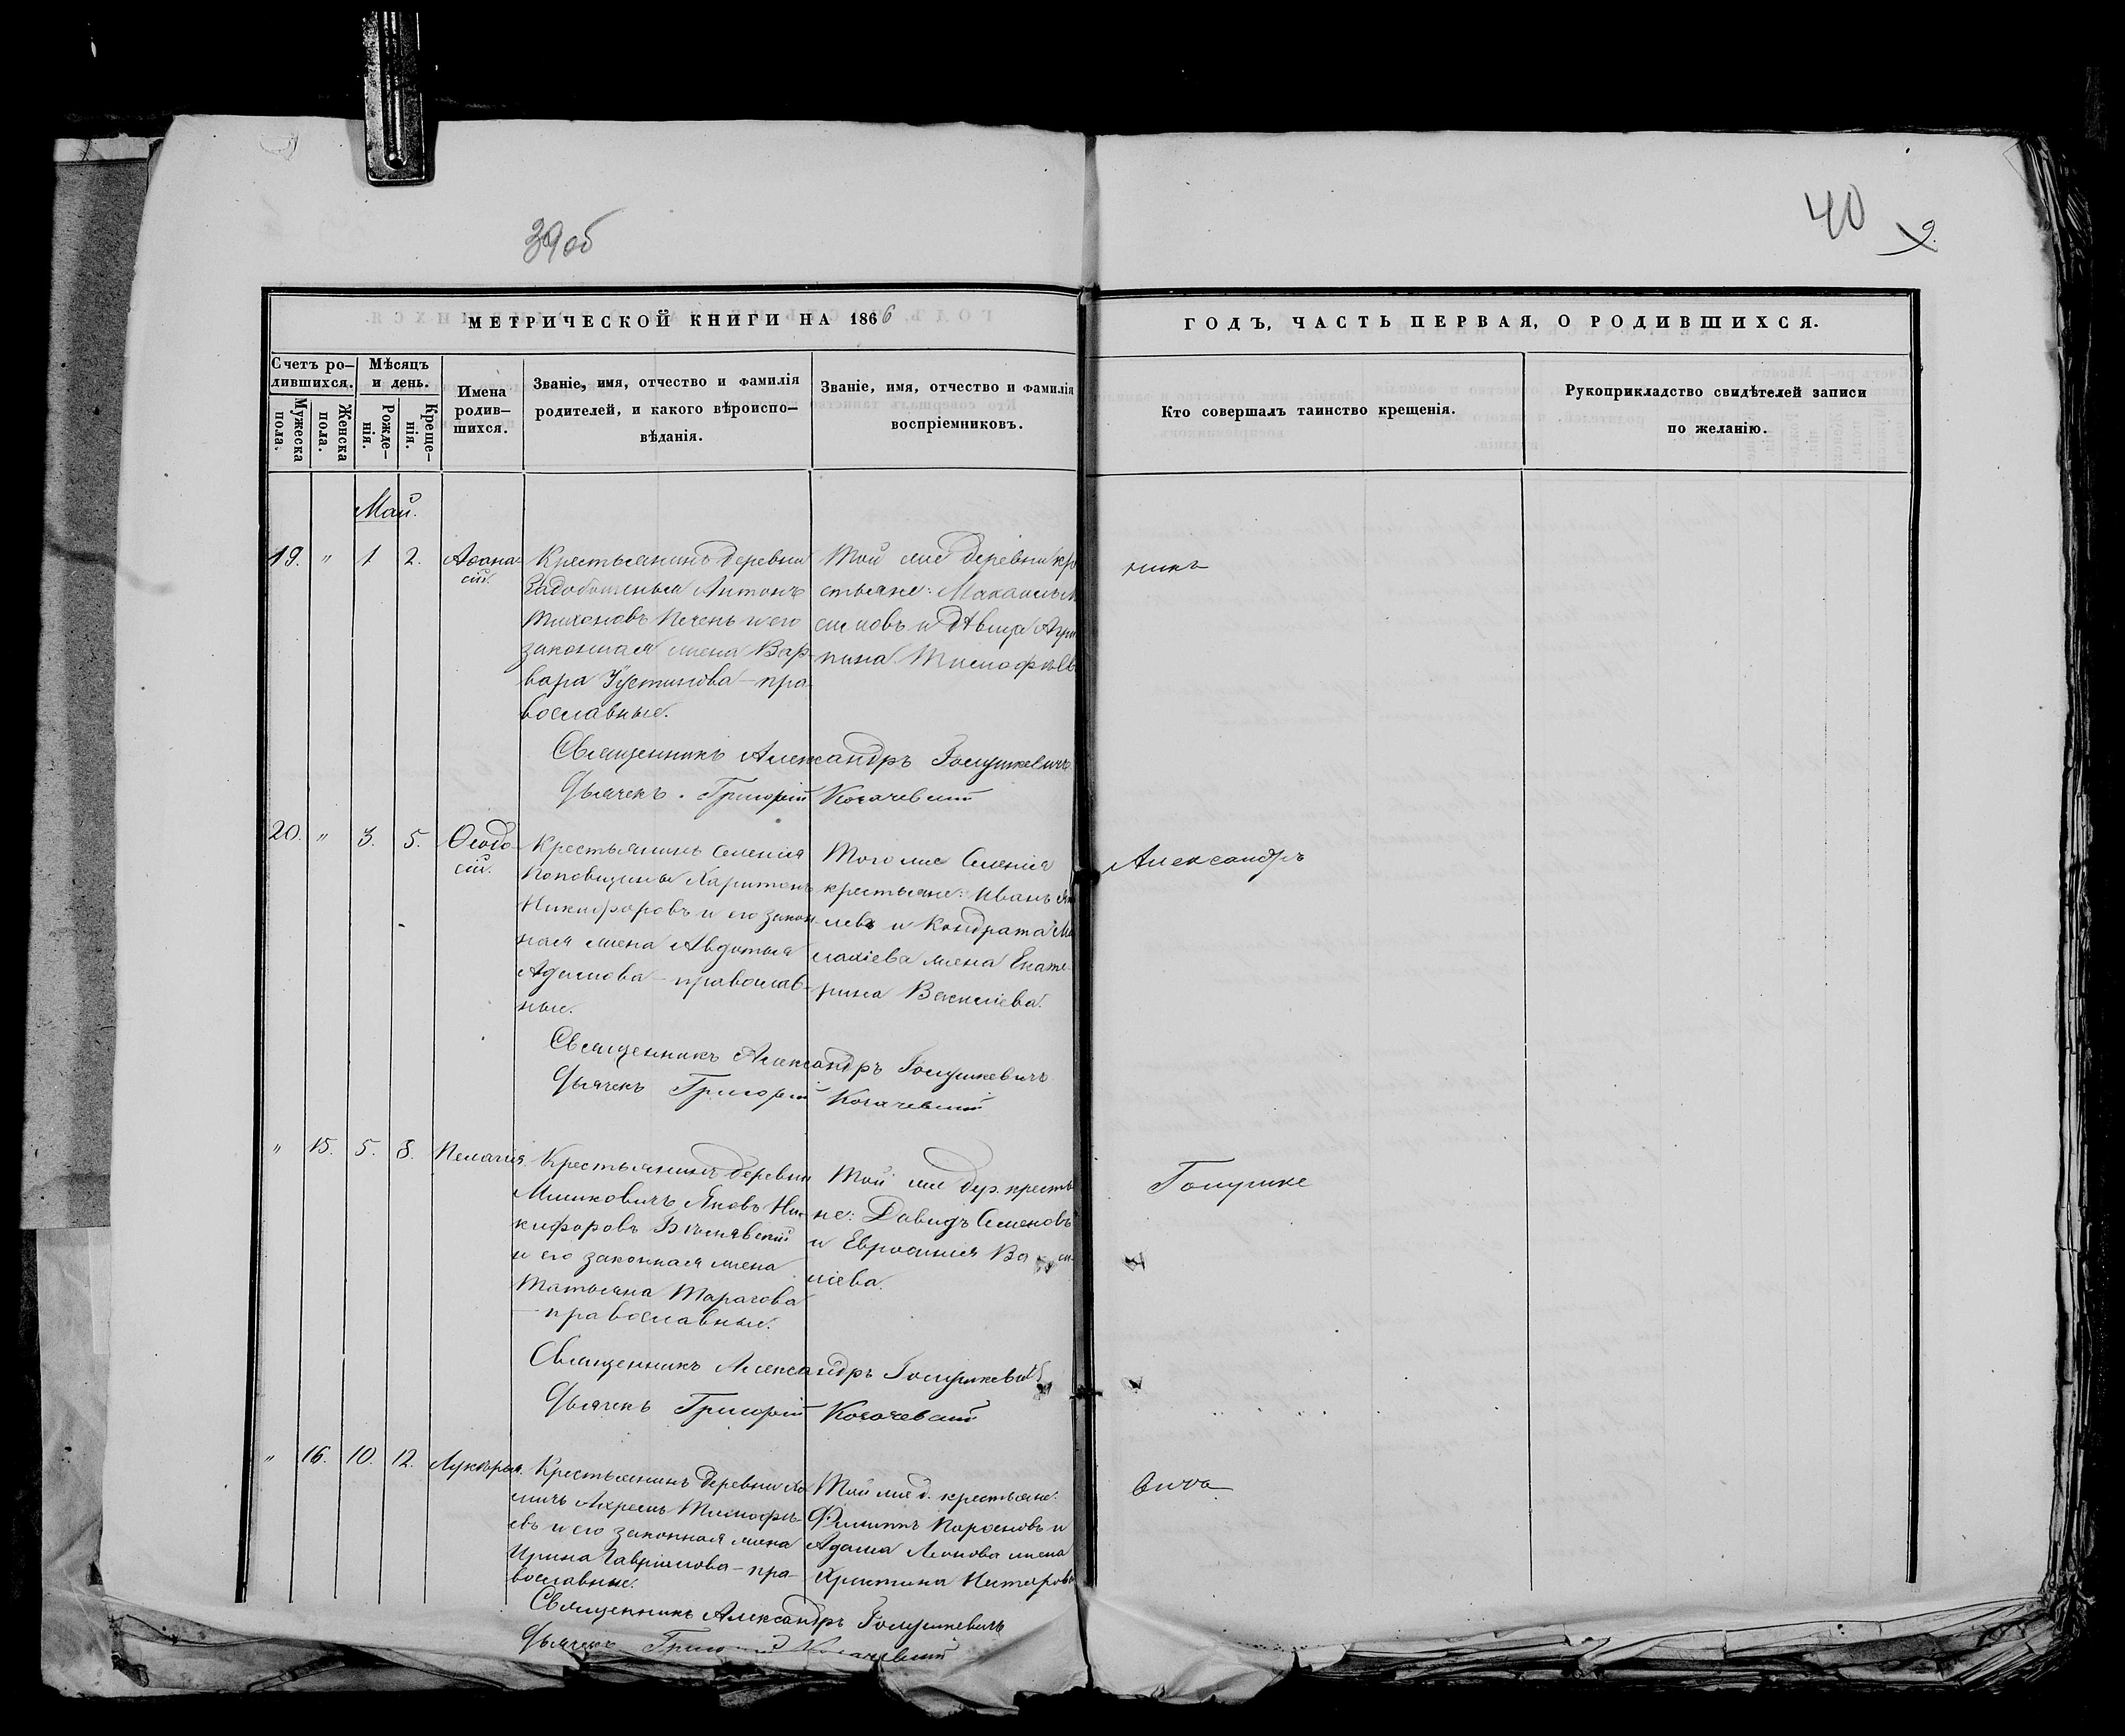 39об
40
9.
МЕТРИЧЕСКОЙ КНИГИ НА 1866
ГОДЪ, ЧАСТЬ ПЕРВАЯ, О РОДИВШИХСЯ.
Счетъ ро-
дившихся.
Мужеска
пола.
Женска
пола.
Мѣсяцъ
и день.
Рожде-
нія.
Креще-
нія.
Имена
родив-
шихся.
Званіе, имя, отчество и фамилія
родителей, и какого вѣроиспо-
вѣданія.
Званіе, имя, отчество и фамилія
воспріемниковъ.
Кто совершалъ таинство крещенія.
Рукоприкладство свидѣтелей записи
по желанію.
Май.
19. " 1 2.
Аѳана-
сій.
Крестьянинъ деревни
Антонъ
Тихоновъ Печень и его
законная жена Вар-
вара Іустинова - пра-
вославные.
Той же деревни кре
стьяне:
и дѣвица Агри
пина Тимофѣев
никъ
Священникъ Александръ Голушкевичъ
Дьячекъ. Григорій Когачевскій
20. " 3. 5.
Ѳеодо-
сій.
Крестьянинъ селенія
Поповщины Харитонъ
Никифоровъ и его закон-
ная жена Авдотья
Адамова - православ-
ные.
Того же селенія
крестьяне: Иванъ
левъ и Кондрата Ма
лахіева жена Екате-
рина Василіева.
Александръ
Священникъ Александръ Голушкевичъ
Дьячекъ Григорій Когачевскій
" 15. 5. 8. Пелагія.
Крестьянинъ деревни
Милковичъ Яковъ Ни-
кифоровъ
и его законная жена
Татьяна Тарасова
- православные.
Той же дер. кресть
не: Давидъ Семеновъ
и Евросинія Ва си-
ліева.
Голушке
Священникъ Александръ Голушкевичъ
Дьячекъ Григорій Когачевскій
" 16. 10. 12. Лукерья.
Крестьянинъ деревни
Ахремъ Тимофѣ-
евъ и его законная жена
Ирина Гавріилова - пра-
вославные.
Той же д. крестьяне:
Филиппъ Парѳеновъ и
Адама Леонова жена
Христина Нестерова
вичъ
Священникъ Александръ Голушкевичъ
Дьячекъ Григорій Когачевскій